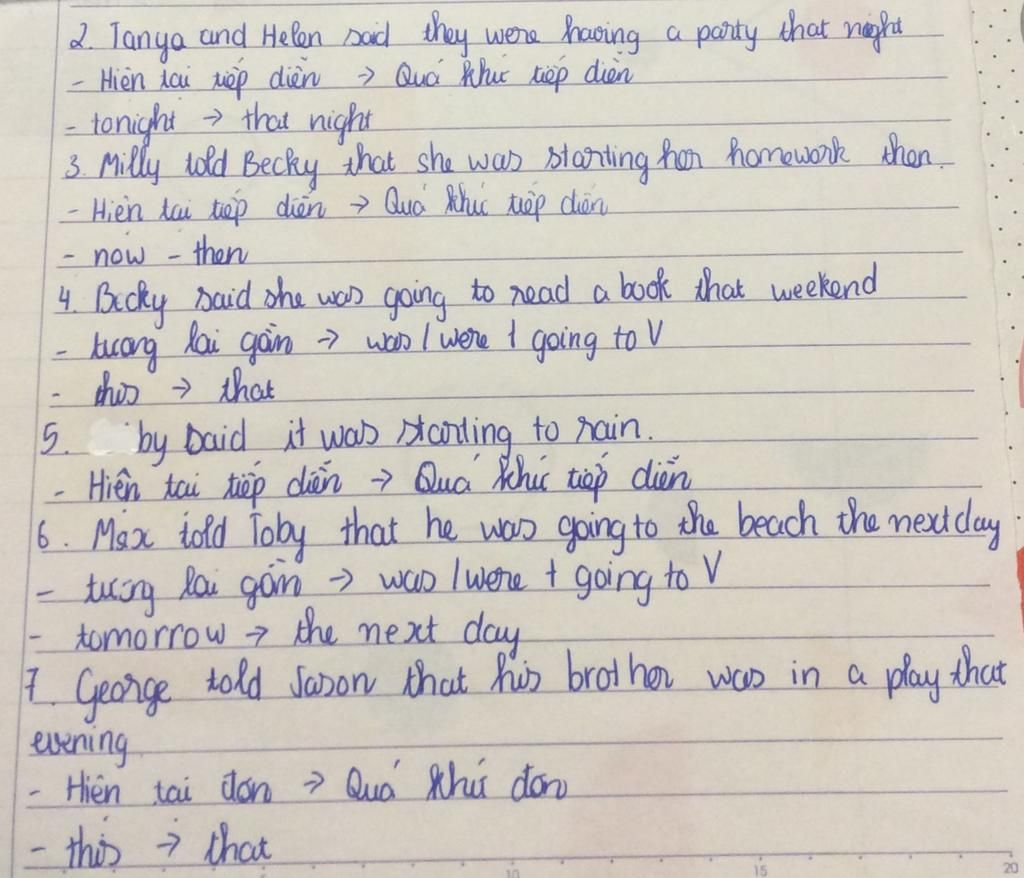 2. Tanya and Helen said they were having a party that night
- Hiện tại tiếp diễn → Quá khứ tiếp diễn
- tonight → that night
3. Milly told Becky that she was starting her homework then.
- Hiện tại tiếp diễn → Quá khứ tiếp diễn
- now - then
4. Becky said she was going to read a book that weekend
- tương lai gần → was / were + going to V
- this → that
5. by said it was starting to rain.
- Hiện tại tiếp diễn → Quá khứ tiếp diễn
6. Max told Toby that he was going to the beach the next day
- tương lai gần → was / were + going to V
- tomorrow → the next day
7. George told Jason that his brother was in a play that
evening.
- Hiện tại đơn → Quá khứ đơn
- this → that
10 15 20